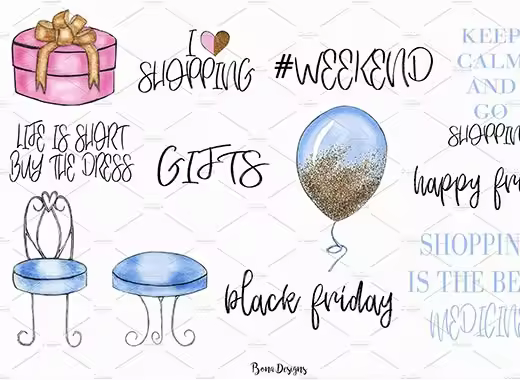 I
SHOPPING
#WEEKEND
KEEP
CALM
AND
GO
LIFE IS SHORT
BUY THE DRESS
GIFTS
happy
IS THE
black friday
Bona Designs